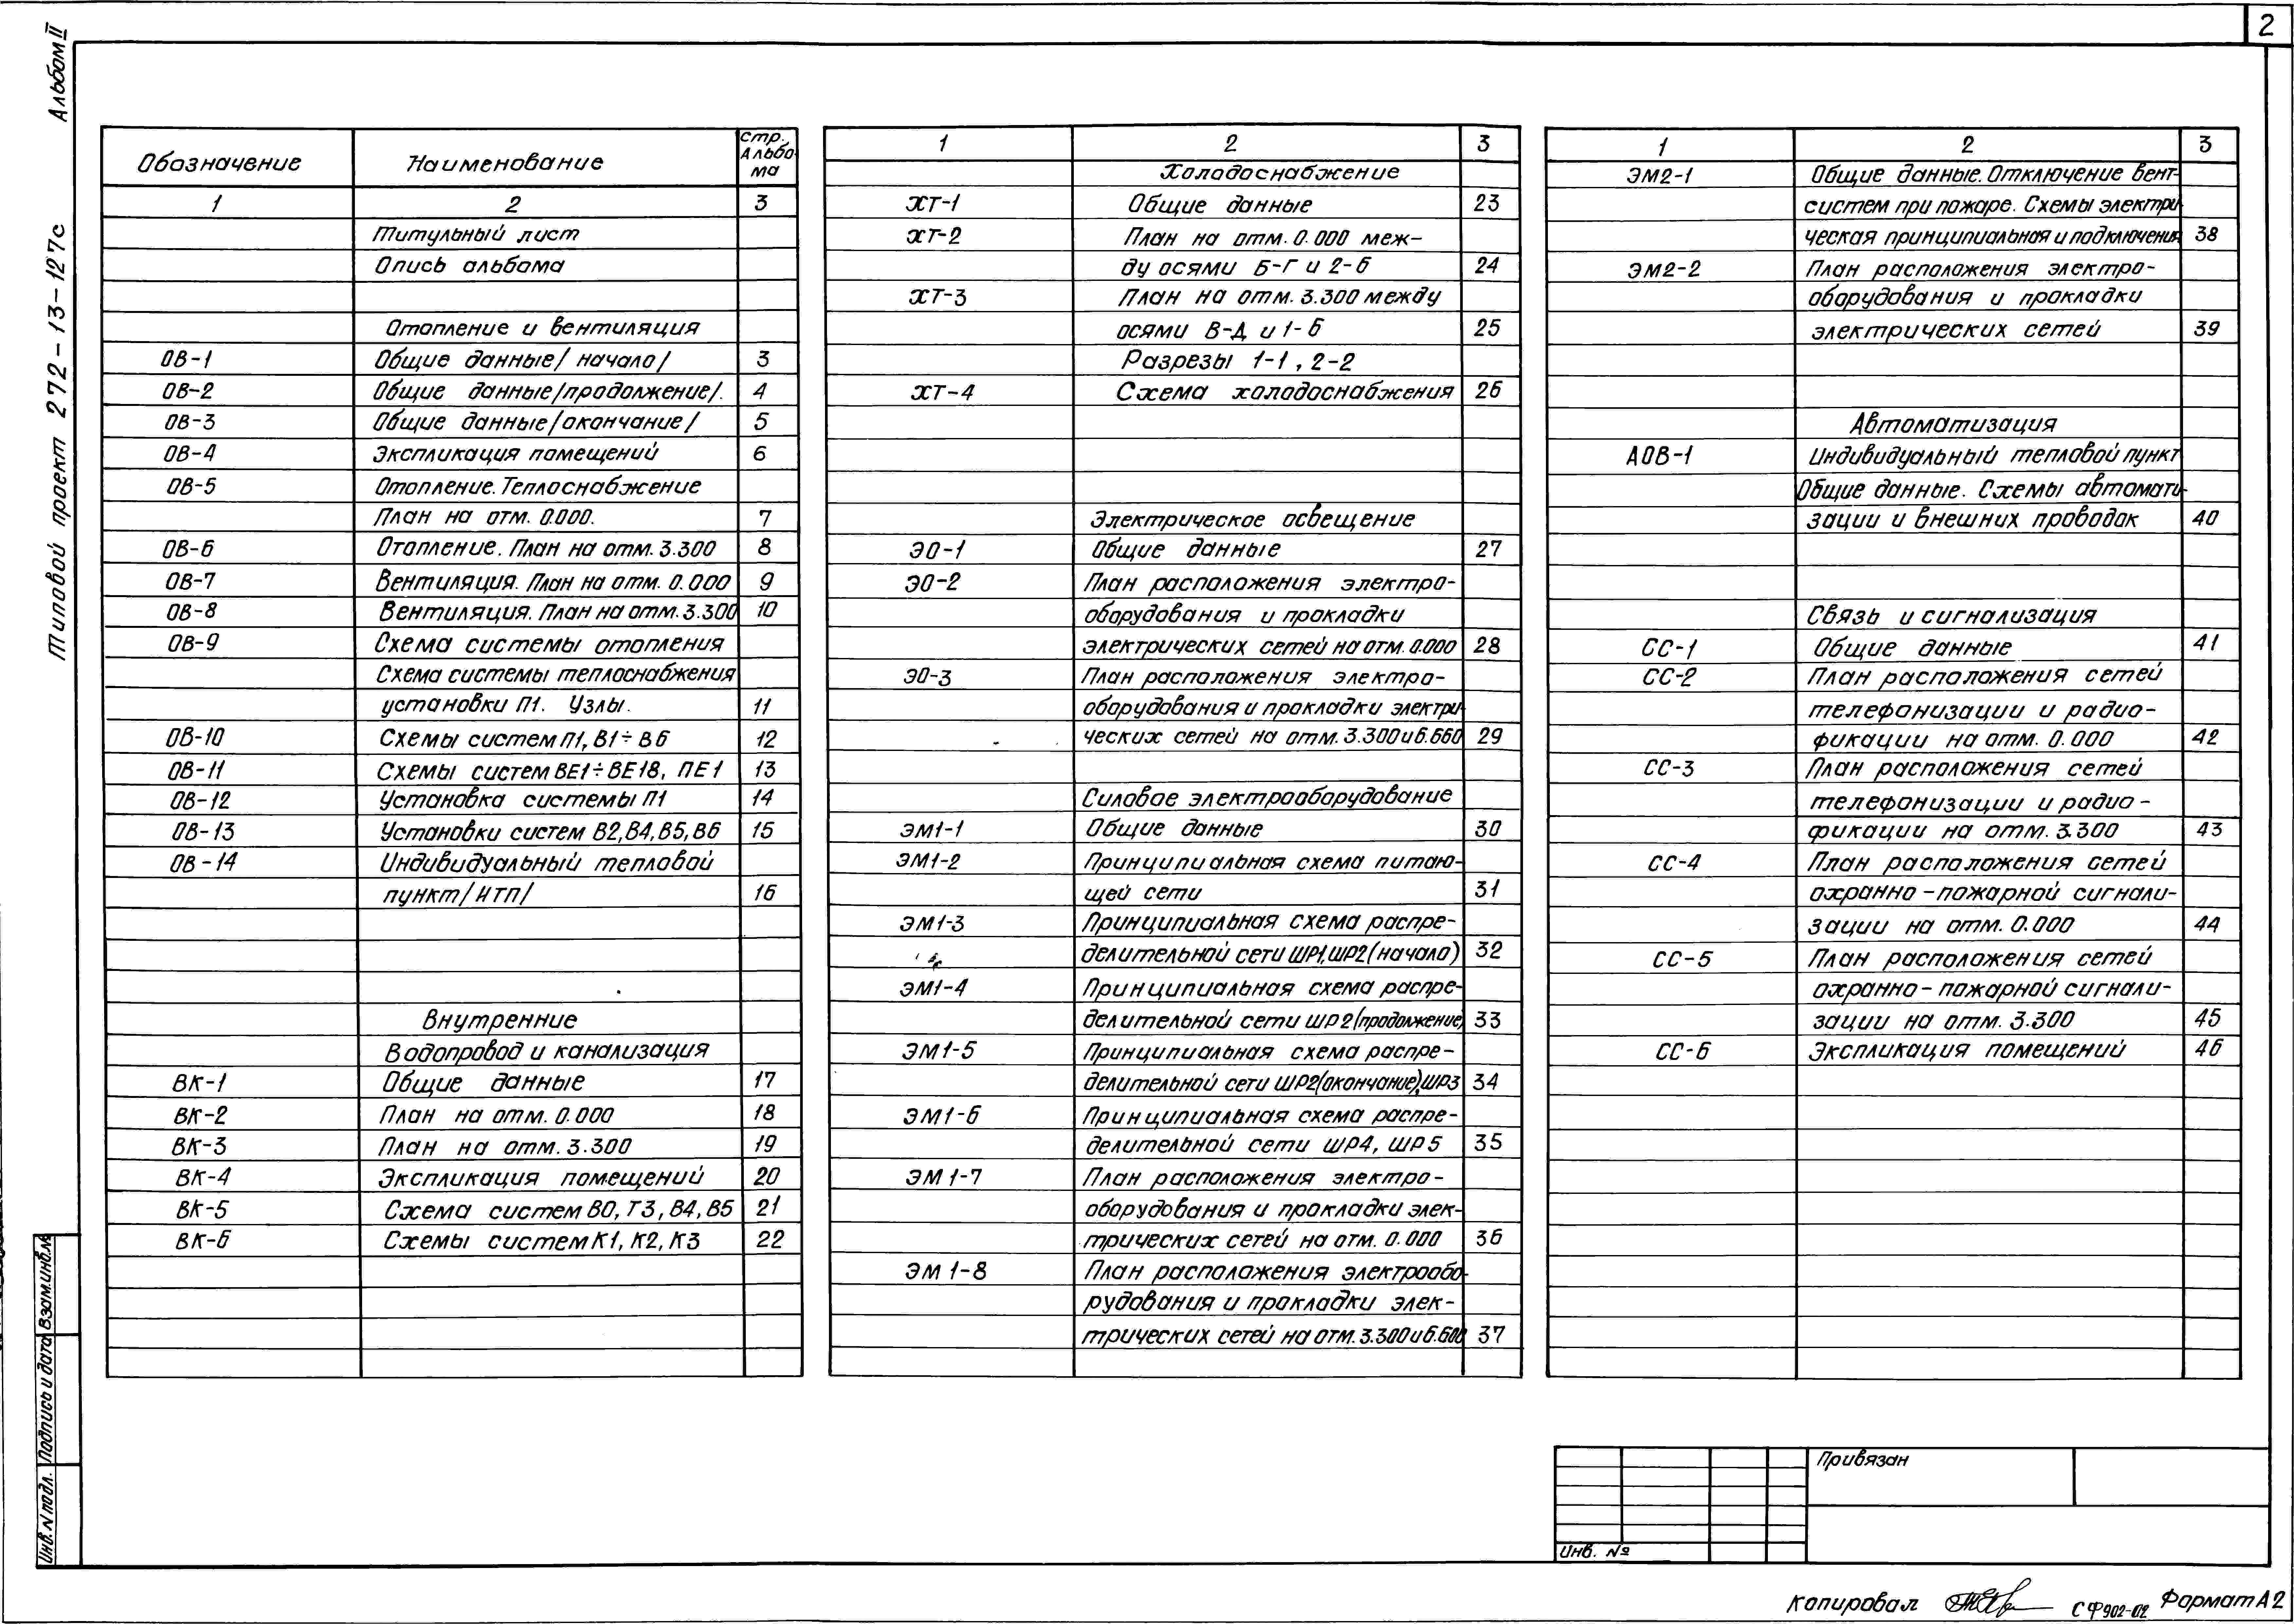 2
Альбом II
Типовой проект 272-13-127с
Обозначение Наименование стр. Альбо- ма
1 2 3
Титульный лист
Опись альбома
Отопление и вентиляция
ОВ-1 Общие данные/начало/ 3
ОВ-2 Общие данные/продолжение/. 4
ОВ-3 Общие данные/окончание/ 5
ОВ-4 Экспликация помещений 6
ОВ-5 Отопление. Теплоснабжение
План на отм. 0.000. 7
ОВ-6 Отопление. План на отм. 3.300 8
ОВ-7 Вентиляция. План на отм. 0.000 9
ОВ-8 Вентиляция. План на отм. 3.300 10
ОВ-9 Схема системы отопления
Схема системы теплоснабжения
установки П1. Узлы. 11
ОВ-10 Схемы систем П1, В1÷В6 12
ОВ-11 Схемы систем ВЕ1÷ВЕ18, ПЕ1 13
ОВ-12 Установка системы П1 14
ОВ-13 Установки систем В2, В4, В5, В6 15
ОВ-14 Индивидуальный тепловой
пункт/ИТП/ 16
Внутренние
Водопровод и канализация
ВК-1 Общие данные 17
ВК-2 План на отм. 0.000 18
ВК-3 План на отм. 3.300 19
ВК-4 Экспликация помещений 20
ВК-5 Схема систем В0, Т3, В4, В5 21
ВК-6 Схемы систем К1, К2, К3 22
1 2 3
Холодоснабжение
ХТ-1 Общие данные 23
ХТ-2 План на отм. 0.000 меж-
ду осями Б-Г и 2-6 24
ХТ-3 План на отм. 3.300 между
осями В-Д и 1-6 25
Разрезы 1-1, 2-2
ХТ-4 Схема холодоснабжения 26
Электрическое освещение
ЭО-1 Общие данные 27
ЭО-2 План расположения электро-
оборудования и прокладки
электрических сетей на отм. 0.000 28
ЭО-3 План расположения электро-
оборудования и прокладки электри-
ческих сетей на отм. 3.300 и 6.660 29
Силовое электрооборудование
ЭМ1-1 Общие данные 30
ЭМ1-2 Принципиальная схема питаю-
щей сети 31
ЭМ1-3 Принципиальная схема распре-
делительной сети ШР1, ШР2 (начало) 32
ЭМ1-4 Принципиальная схема распре-
делительной сети ШР2 (продолжение) 33
ЭМ1-5 Принципиальная схема распре-
делительной сети ШР2 (окончание), ШР3 34
ЭМ1-6 Принципиальная схема распре-
делительной сети ШР4, ШР5 35
ЭМ1-7 План расположения электро-
оборудования и прокладки элек-
трических сетей на отм. 0.000 36
ЭМ1-8 План расположения электрообо-
рудования и прокладки элек-
трических сетей на отм. 3.300 и 6.600 37
1 2 3
ЭМ2-1 Общие данные. Отключение вент-
систем при пожаре. Схемы электри-
ческая принципиальная и подключения 38
ЭМ2-2 План расположения электро-
оборудования и прокладки
электрических сетей 39
Автоматизация
АОВ-1 Индивидуальный тепловой пункт
Общие данные. Схемы автомати-
зации и внешних проводок 40
Связь и сигнализация
СС-1 Общие данные 41
СС-2 План расположения сетей
телефонизации и радио-
фикации на отм. 0.000 42
СС-3 План расположения сетей
телефонизации и радио-
фикации на отм. 3.300 43
СС-4 План расположения сетей
охранно-пожарной сигнали-
зации на отм. 0.000 44
СС-5 План расположения сетей
охранно-пожарной сигнали-
зации на отм. 3.300 45
СС-6 Экспликация помещений 46
Инв. N подл. Подпись и дата Взам.инв.№
Привязан
Инв. №
Копировал СФ902-02 Формат А2